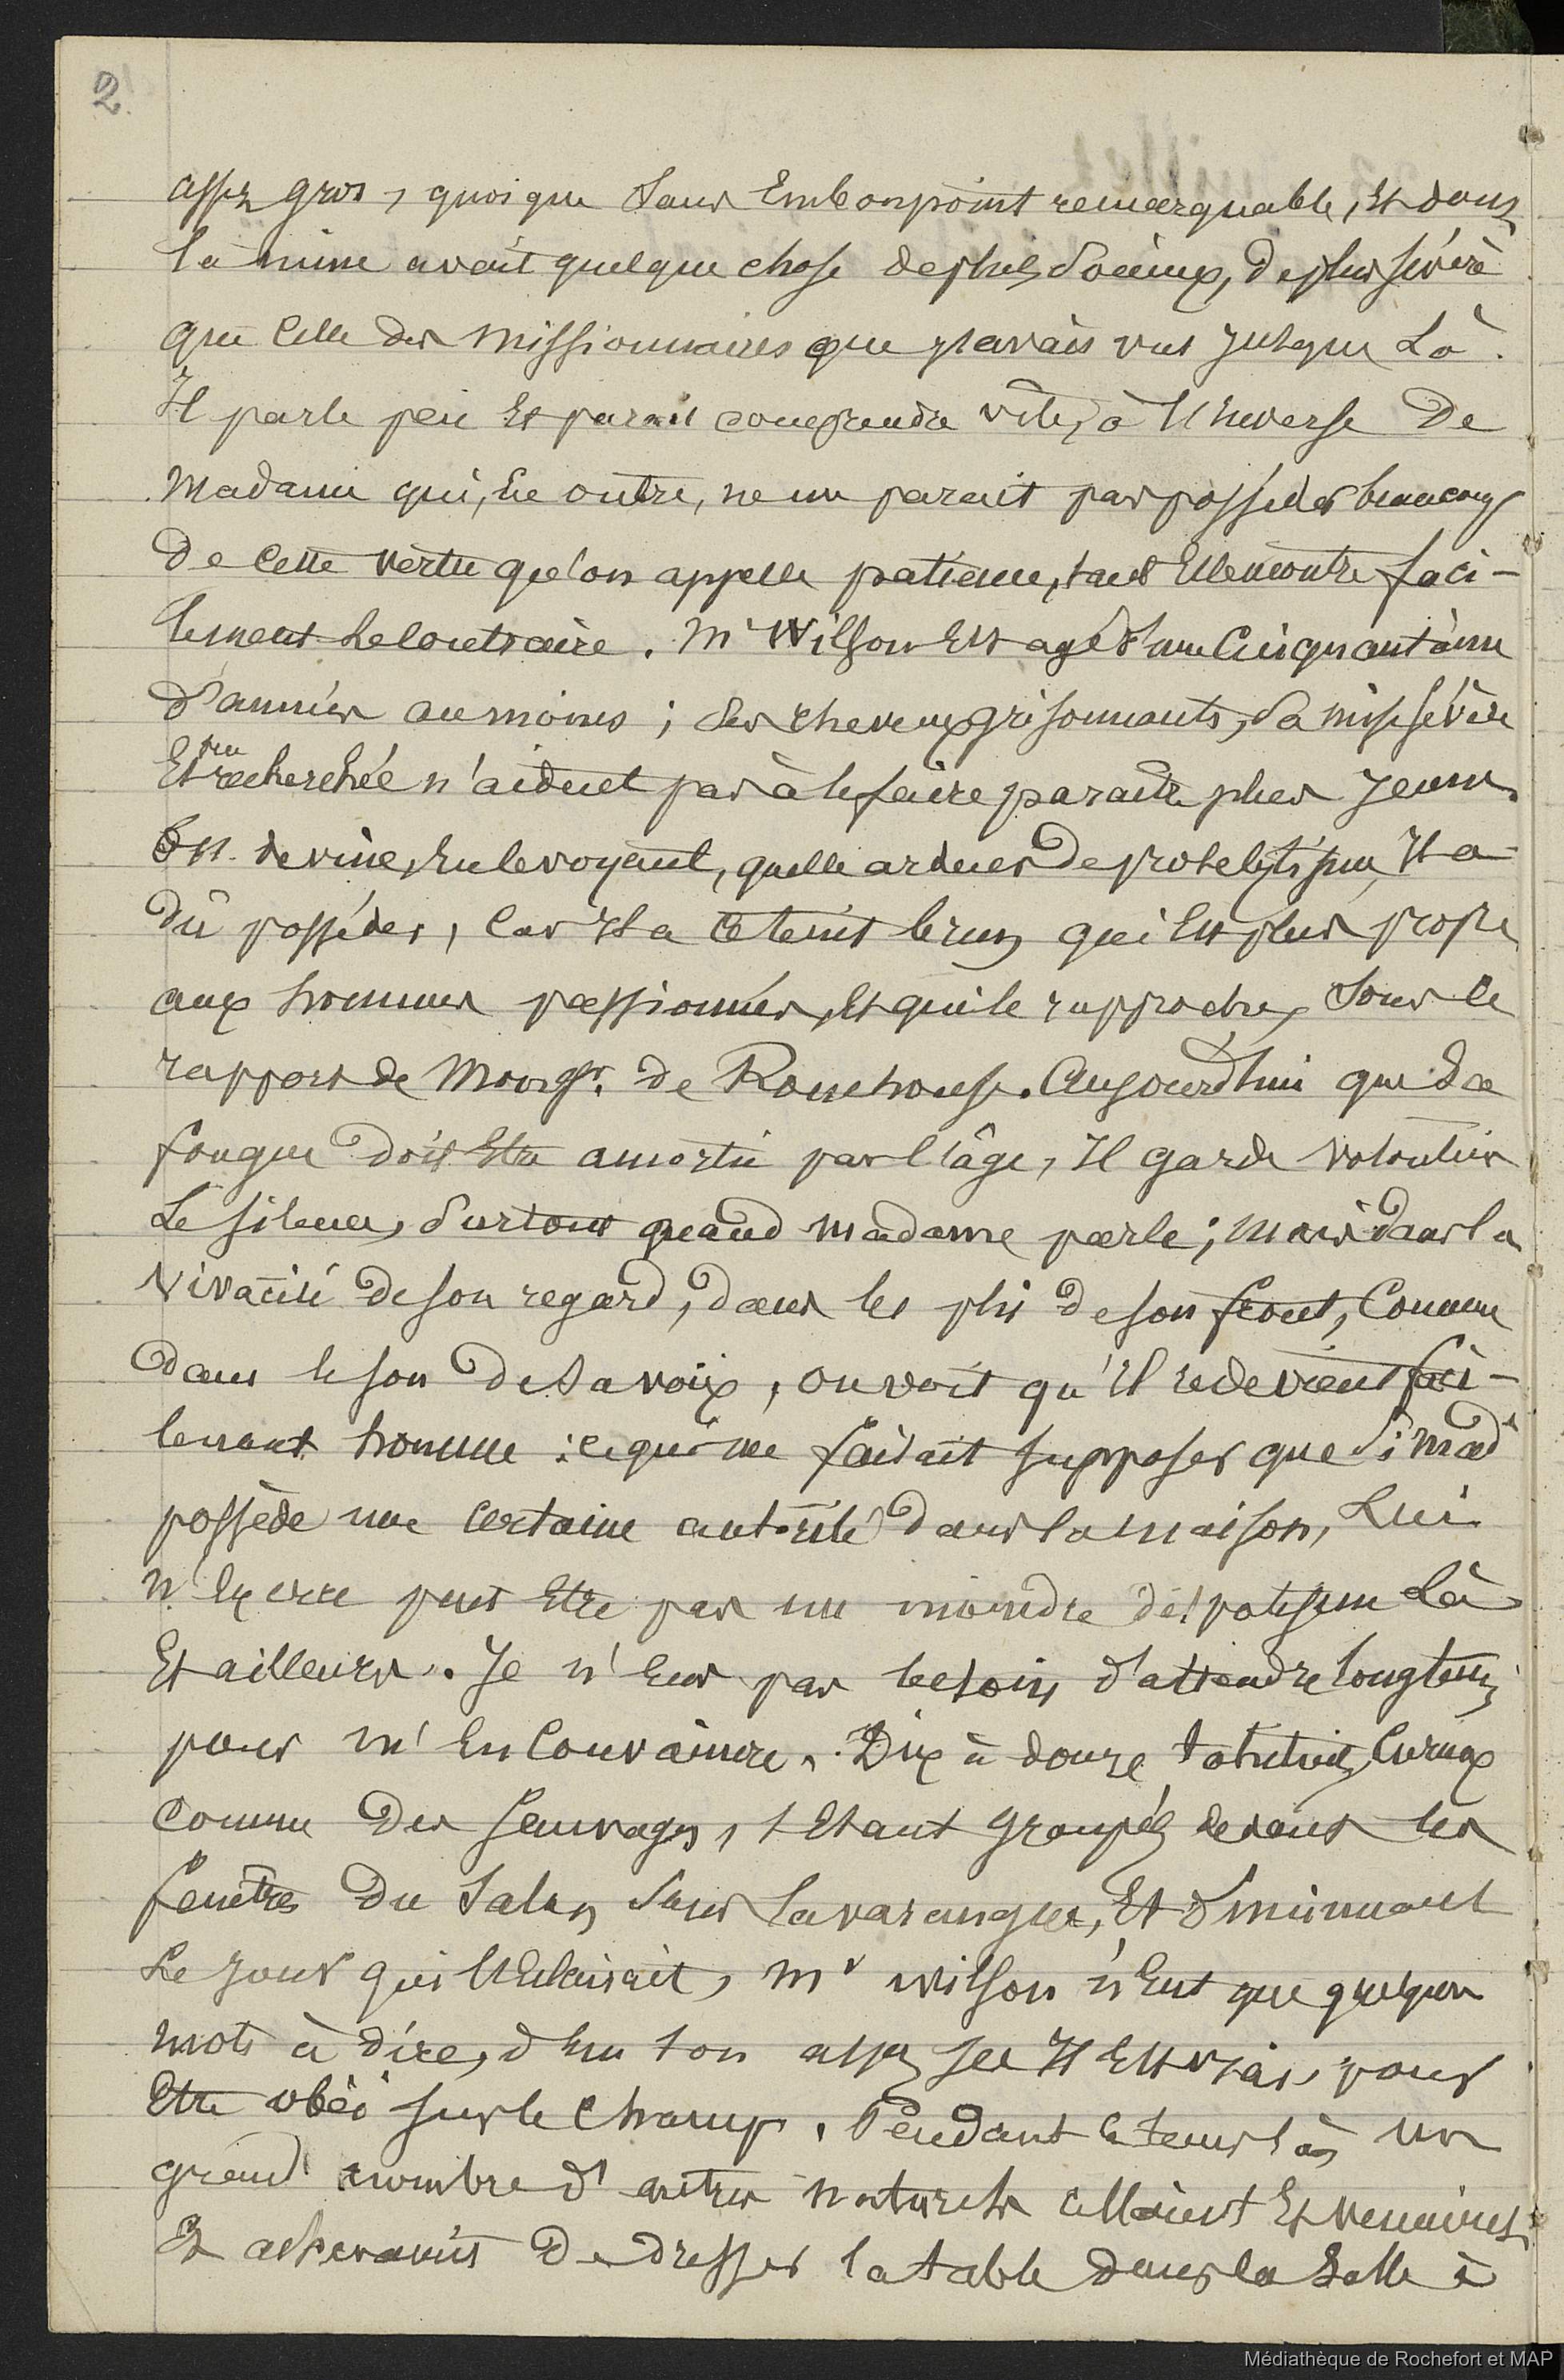 2
assez gros, quoique sans Embonpoint remarquable, Et dont
la mine avait quelque chose de plus soucieux, de plus sévère
que Celle des missionnaires que j'avais vus jusque Là.
Il parle peu Et parait comprendre vite, à l'Inverse De
Madame qui, En outre, ne me parait pas posséder beaucoup
De Cette vertu qu'on appelle patience, tant Elle montre faci-
lement le contraire. Mr Wilson Est agé d'une Cinquantaine
d'années au moins ; ses cheveux grisonnants, sa mise sévère
Et peu recherchée n'aident pas à le faire paraitre plus jeune.
On devine, En le voyant, quelle ardeur De proselytisme, Il a
Dû posséder, Car Il a Ce teint brun qui Est plus propre
aux hommes passionnés, Et qui le rapproche, sous ce
rapport de Monsgr. de Rouchouse. Aujourd'hui que sa
fougue doit Etre amortie par l'âge, Il garde volontiers
Le silence, surtout quand madame parle ; mais dans la
vivacité De son regard, dans les plis De son front, Comme
dans le son De sa voix, on voit qu'Il redevient faci-
lement homme : ce qui me faisait supposer que si Made
possède une certaine autorité dans la maison, Lui
n'Exerce peut Etre pas un moindre despotisme Là
Et ailleurs. Je n'Eus pas besoin d'attendre longtems
pour m'En Convaincre. Dix à douze tahitiens, Curieux
comme Des sauvages, s'Etant groupés devant les
fenêtres Du salon sous la varangue, Et diminuant
Le jour qui l'Eclairait, Mr Wilson n'Eut que quelques
mots à dire, d'un ton assez sec Il Est vrai, pour
Etre obéi sur le champ. Pendant ce tems là, un
grand nombre d'autres naturels allaient Et venaient
Et achevaient De dresser la table dans la salle à
Médiathèque de Rochefort et MAP